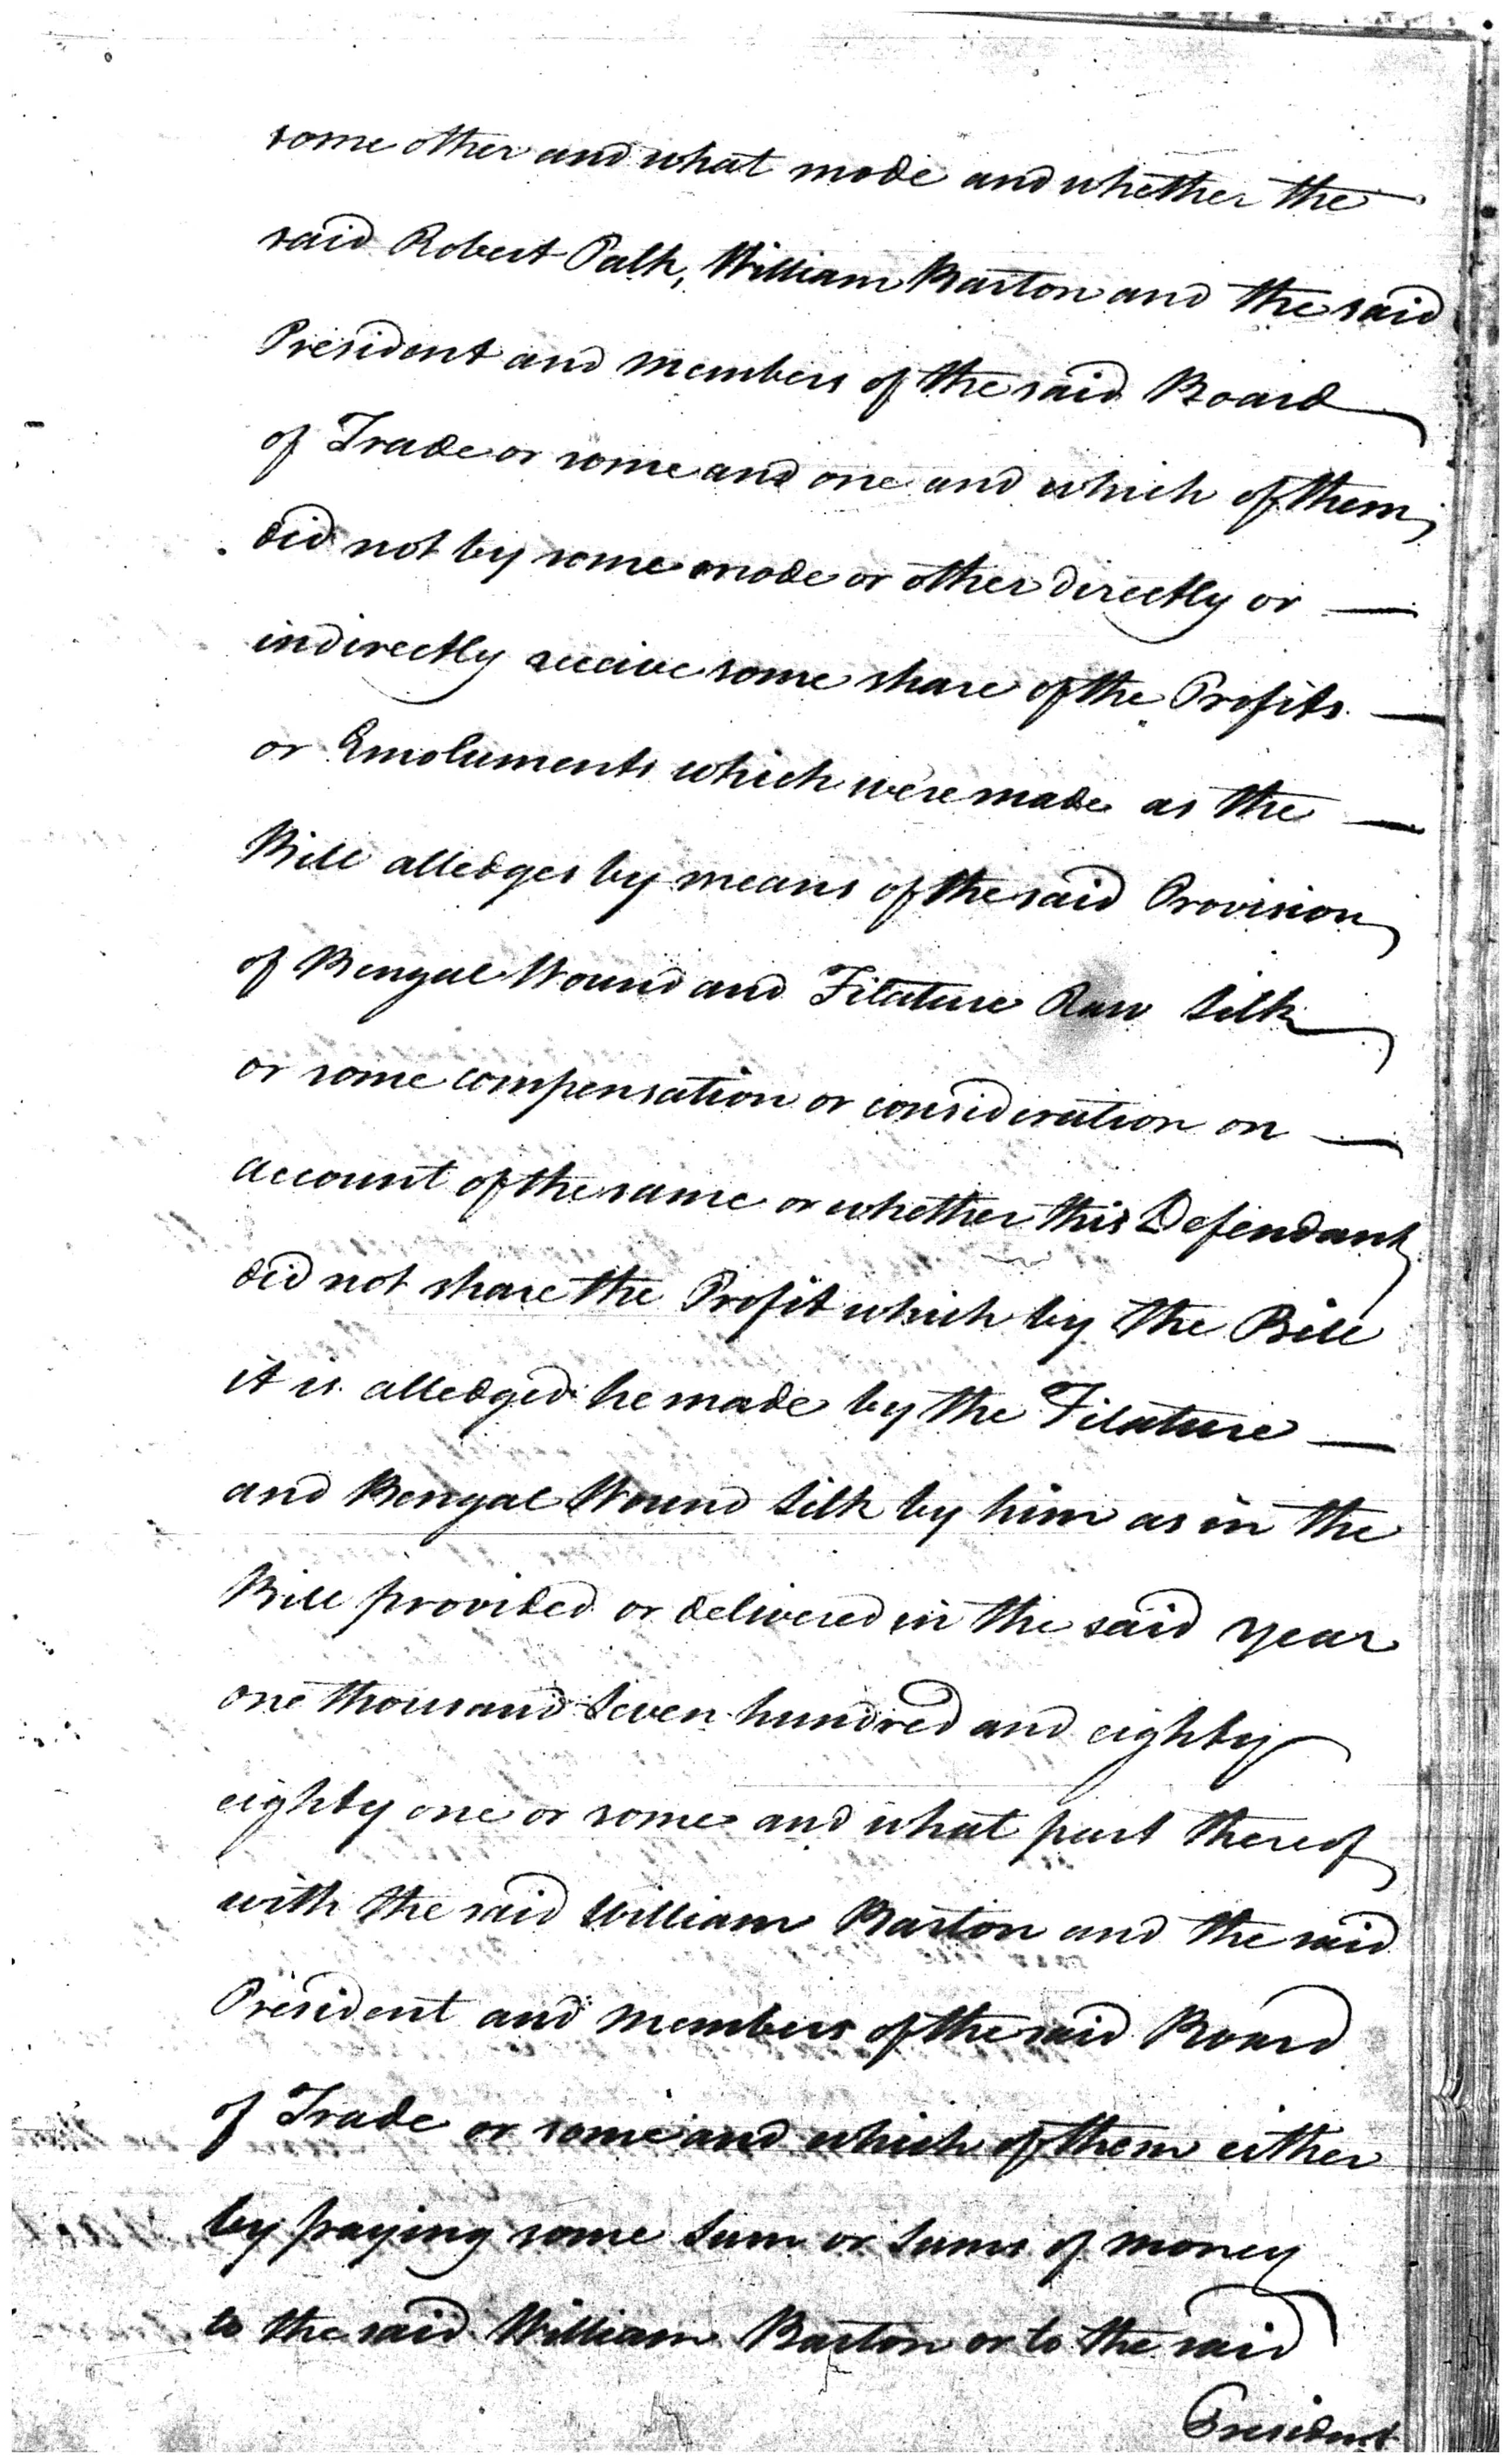 some other and what mode and whether the
said Robert Palk, William Barton and the said
President and Members of the said Board
of Trade or some and one and which of them
did not by some mode or other directly or
indirectly receive some share of the Profits
or Emoluments which were made as the
Bill alledges by means of the said Provision
of Bengal Wound and Filature Raw Silk
or some compensation or consideration on
account of the same or whether this Defendant
did not share the Profit which by the Bill
it is alledged he made by the Filature
and Bengal Wound Silk by him as in the
Bill provided or delivered in the said year
one thousand Seven hundred and eighty
eighty one or some and what part thereof
with the said William Barton and the said
President and Members of the said Board
of Trade or some and which of them either
by paying some Sum or Sums of Money
to the said William Barton or to the said
President